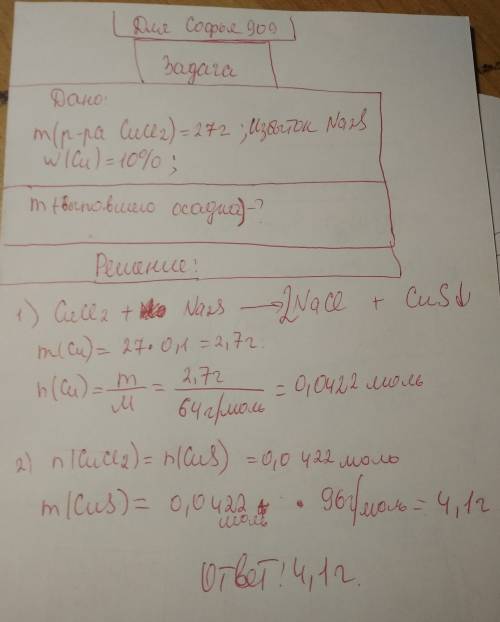 Для Софья 909
Задача
Дано:
m(р-ра CuCl2)=27г ; Избыток Na2S
w(Cu)=10% ;
m(выпавшего осадка)-?
Решение:
1) CuCl2 + Na2S → 2NaCl + CuS↓
m(Cu) = 27·0,1 = 2,7г.
n(Cu) = m/M = 2,7г/64г/моль = 0,0422 моль
2) n(CuCl2) = n(CuS) = 0,0422 моль
m(CuS) = 0,0422 моль · 96г/моль = 4,1г
Ответ! 4,1г.